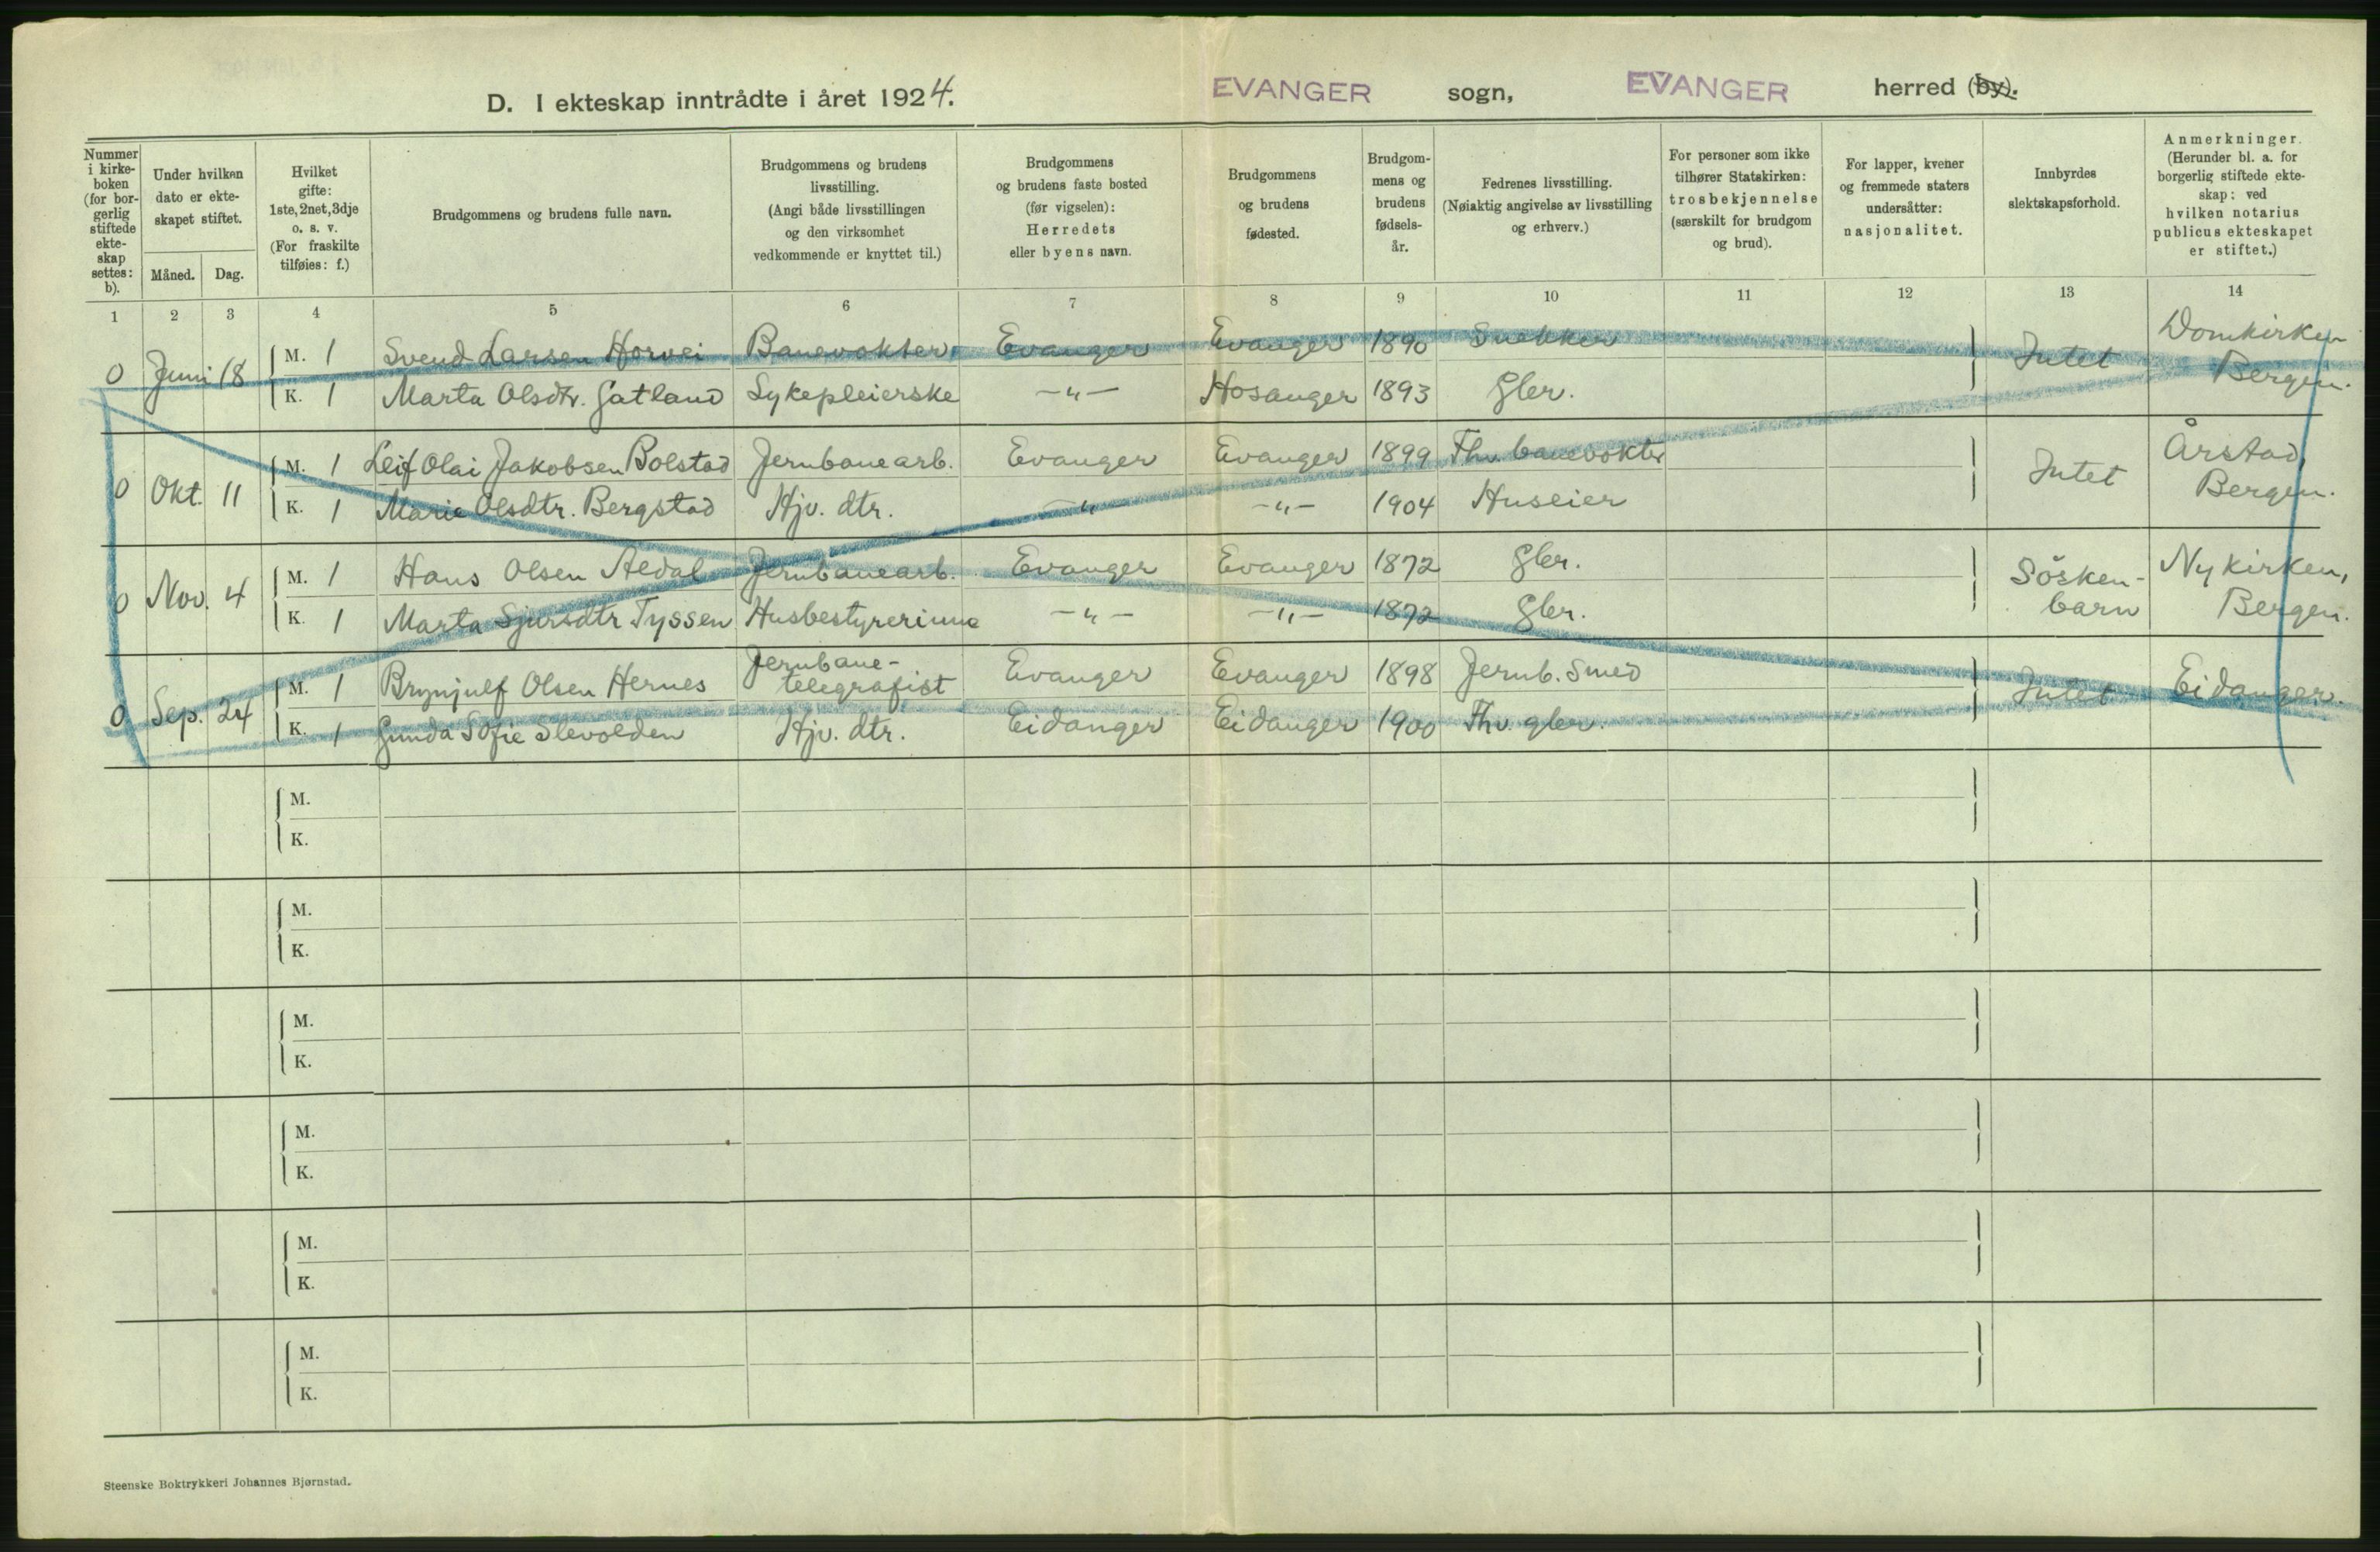 D. I ekteskap inntrådte i året 1924. EVANGER sogn, EVANGER herred (by).
Nummer
i kirke-
boken
(for bor-
gerlig
stiftede
ekte-
skap
settes:
b).
Under hvilken
dato er ekte-
skapet stiftet.
Måned. Dag.
Hvilket
gifte:
1ste, 2net, 3dje
o. s. v.
(For fraskilte
tilføies: f.)
Brudgommens og brudens fulle navn.
Brudgommens og brudens
livsstilling.
(Angi både livsstillingen
og den virksomhet
vedkommende er knyttet til.)
Brudgommens
og brudens faste bosted
(før vigselen):
Herredets
eller byens navn.
Brudgommens
og brudens
fødested.
Brudgom-
mens og
brudens
fødsels-
år.
Fedrenes livsstilling.
(Nøiaktig angivelse av livsstilling
og erhverv.)
For personer som ikke
tilhører Statskirken:
trosbekjennelse
(særskilt for brudgom
og brud).
For lapper, kvener
og fremmede staters
undersåtter:
nasjonalitet.
Innbyrdes
slektskapsforhold.
Anmerkninger.
(Herunder bl. a. for
borgerlig stiftede ekte-
skap: ved
hvilken notarius
publicus ekteskapet
er stiftet.)
1 2 3 4 5 6 7 8 9 10 11 12 13 14
0 Juni 18
M. 1 Svend Larsen Horvei Banevokter Evanger Evanger 1890 Snekker Intet Domkirken
K. 1 Marta Olsdtr. Gatland Sykepleierske -"- Hosanger 1893 Gbr. Bergen.
0 Okt. 11
M. 1 Leif Olai Jakobsen Bolstad Jernbanearb. Evanger Evanger 1899 Fhv. banevokter Intet Årstad,
K. 1 Marie Olsdtr. Bergstad Hjv. dtr. -"- -"- 1904 Huseier Bergen.
0 Nov. 4
M. 1 Hans Olsen Aedal Jernbanearb. Evanger Evanger 1872 Gbr. Søsken- Nykirken,
K. 1 Marta Sjursdtr Tyssen Husbestyrerinne -"- -"- 1872 Gbr. barn Bergen.
0 Sep. 24
M. 1 Brynjulf Olsen Hernes Jernbane-
telegrafist Evanger Evanger 1898 Jernb. Smed Intet Eidanger.
K. 1 Gunda Sofie Slevolden Hjv. dtr. Eidanger Eidanger 1900 Fhv. gbr.
M.
K.
M.
K.
M.
K.
M.
K.
M.
K.
M.
K.
Steenske Boktrykkeri Johannes Bjørnstad.